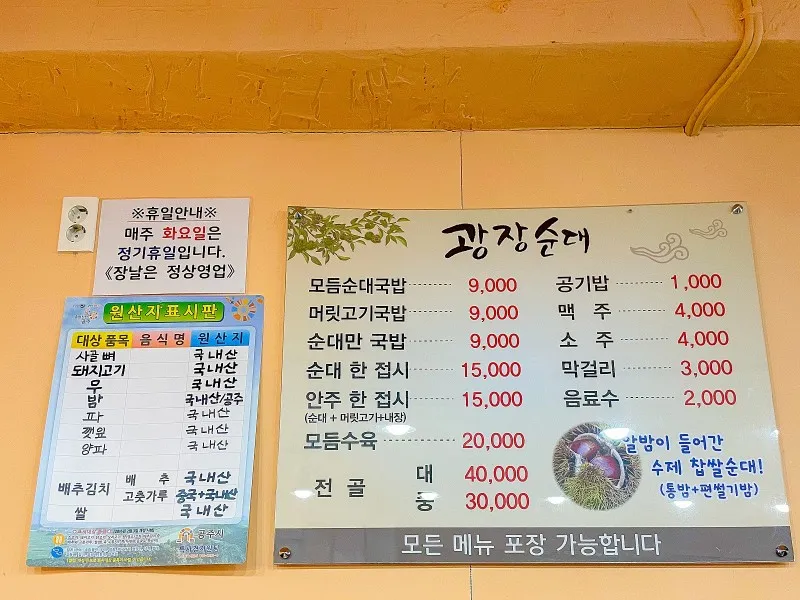 ※휴일안내※
매주 화요일은
정기휴일입니다.
《장날은 정상영업》
원산지표시판
대상품목 음식명 원산지
사골뼈 국내산
돼지고기 국내산
무 국내산
밤 국내산/공주
파 국내산
깻잎 국내산
양파 국내산
배추김치 배추 국내산
고춧가루 중국+국내산
쌀 국내산
공주시
광장순대
모듬순대국밥 9,000
머릿고기국밥 9,000
순대만 국밥 9,000
순대 한 접시 15,000
안주 한 접시 15,000
(순대 + 머릿고기+내장)
모듬수육 20,000
전골 대 40,000
중 30,000
공기밥 1,000
맥주 4,000
소주 4,000
막걸리 3,000
음료수 2,000
알밤이 들어간
수제 찹쌀순대!
(통밤+편썰기밤)
모든 메뉴 포장 가능합니다